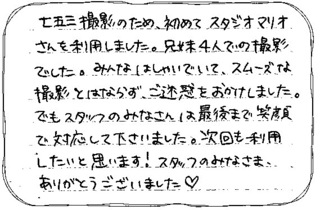 七五三撮影のため、初めてスタジオマリオ
さんを利用しました。兄妹4人での撮影
でした。みんなはしゃいでいて、スムーズな
撮影とはならず、ご迷惑をおかけしました。
でもスタッフのみなさんは最後まで笑顔
で対応して下さいました。次回も利用
したいと思います!スタッフのみなさま、
ありがとうございました♡